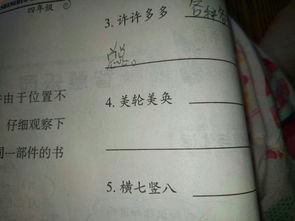 四年级
3. 许许多多
于由于位置不
4. 美轮美奂
仔细观察下
同一部件的书
5. 横七竖八